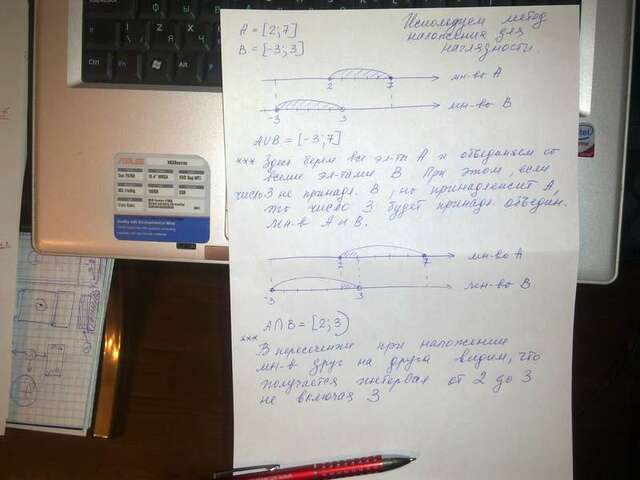 A = [2;7]
B = [-3;3]
Используем метод
наложения для
наглядности.
2 7 мн-во A
-3 3 мн-во B
A∪B = [-3;7]
××× Здесь берем все эл-ты A и объединяем со
всеми эл-тами B При этом, если
число 3 не принадл. B, но принадлежит A,
то число 3 будет принадл. объедин.
мн-в A и B.
2 7 мн-во A
-3 3 мн-во B
A∩B = [2;3)
×××
В пересечении при наложении
мн-в друг на друга видим, что
получается интервал от 2 до 3
не включая 3
ASUS